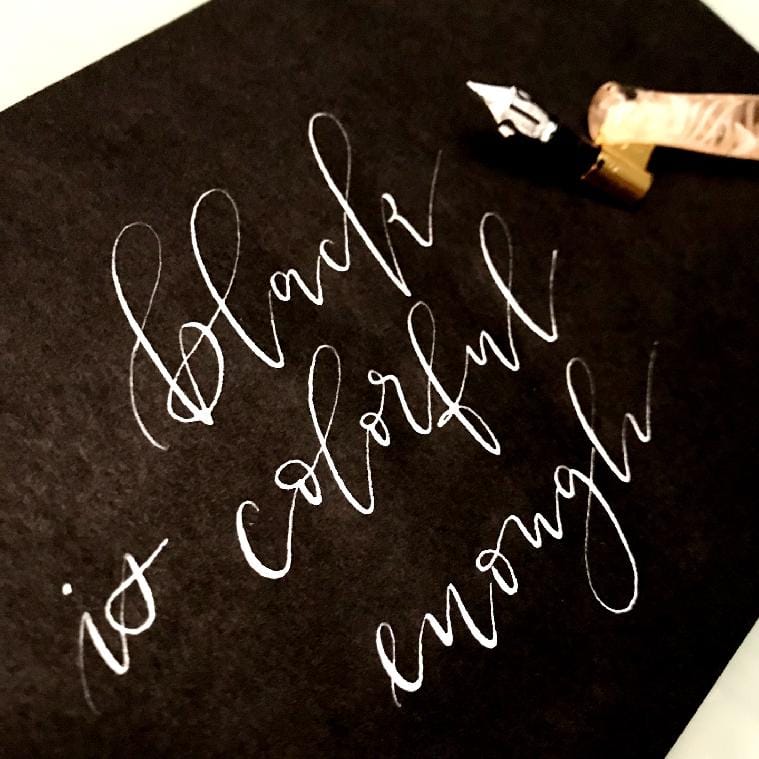 black
is colorful
enough